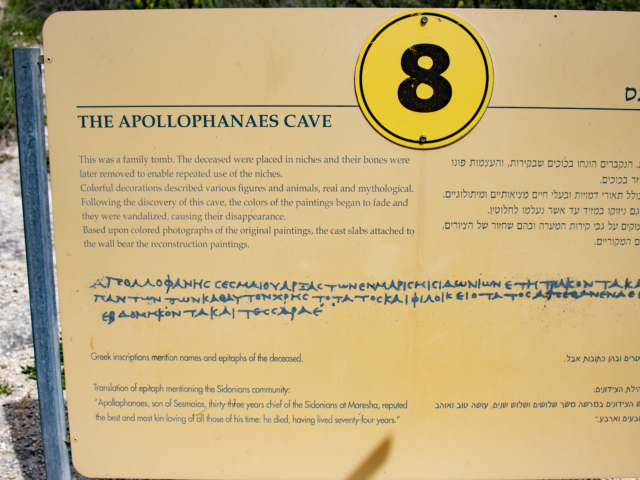 8
THE APOLLOPHANAES CAVE
This was a family tomb. The deceased were placed in niches and their bones were
later removed to enable repeated use of the niches.
Colorful decorations described various figures and animals, real and mythological.
Following the discovery of this cave, the colors of the paintings began to fade and
they were vandalized, causing their disappearance.
Based upon colored photographs of the original paintings, the cast slabs attached to
the wall bear the reconstruction paintings.
הנקברים הונחו בכוכים שבקירות, והעצמות פונו
בכוכים.
תאורי דמויות ובעלי חיים מציאותיים ומיתולוגיים.
ניזוקו במזיד עד אשר נעלמו לחלוטין.
על גבי קירות המערה ובהם שחזור של הציורים.
המקוריים.
ΑΠΟΛΛΟΦΑΝΗС СΕСΜΑΙΟΥ ΑΡΞΑС ΤΩΝ ΕΝ ΜΑΡΙСΗΙ СΙΔΩΝΙΩΝ ΕΤΗ ΤΡΙΑΚΟΝΤΑ
ΠΑΝΤΩΝ ΤΩΝ ΚΑΘ ΑΥΤΟΝ ΧΡΗС ΤΟΤΑΤΟС ΚΑΙ ΦΙΛΟΙΚΕΙΟΤΑΤΟС
ΕΒΔΟΜΗΚΟΝΤΑ ΚΑΙ ΤΕССΑΡΑ ΕΤ
Greek inscriptions mention names and epitaphs of the deceased.
ובהן כתובות אבל.
Translation of epitaph mentioning the Sidonians community:
הצידונים:
"Apollophanaes, son of Sesmaios, thirty-three years chief of the Sidonians at Maresha, reputed
הצידונים במרשה משך שלושים ושלוש שנים, עושה טוב ואוהב
the best and most kin-loving of all those of his time: he died, having lived seventy-four years."
וארבע."